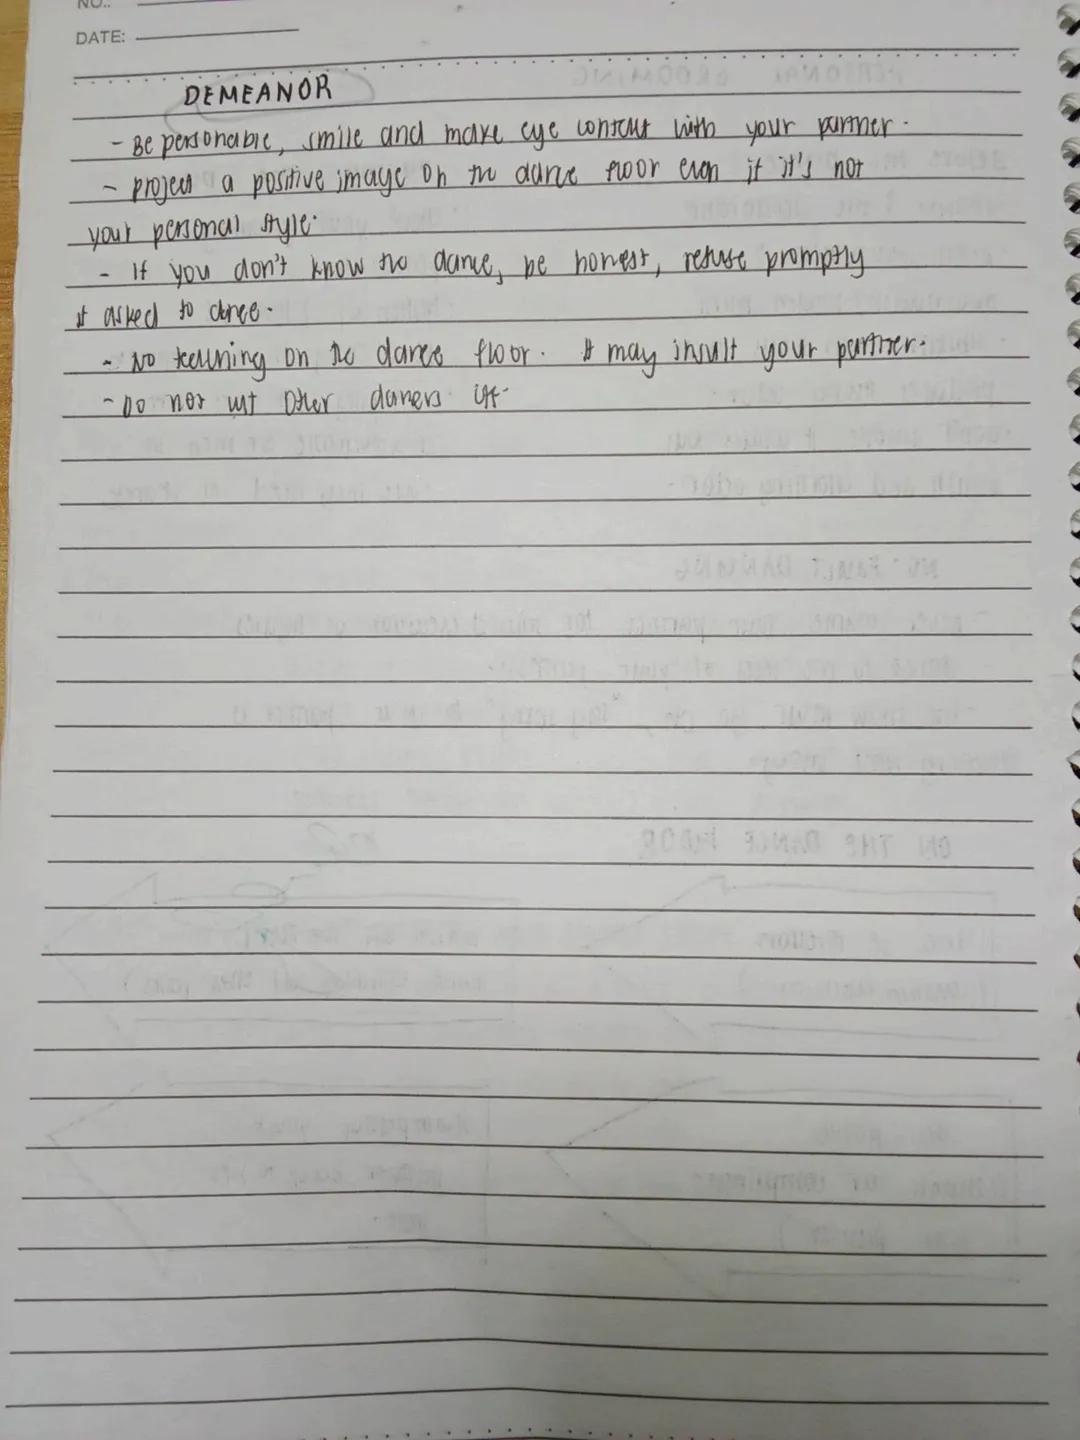 NO.:
DATE:
DEMEANOR
- Be personable, smile and make eye contact with your partner.
- project a positive image on the dance floor even if it's not
your personal style.
- If you don't know the dance, be honest, refuse promptly
if asked to dance.
- No teaching on the dance floor. It may insult your partner.
- Do not cut other dancers off.